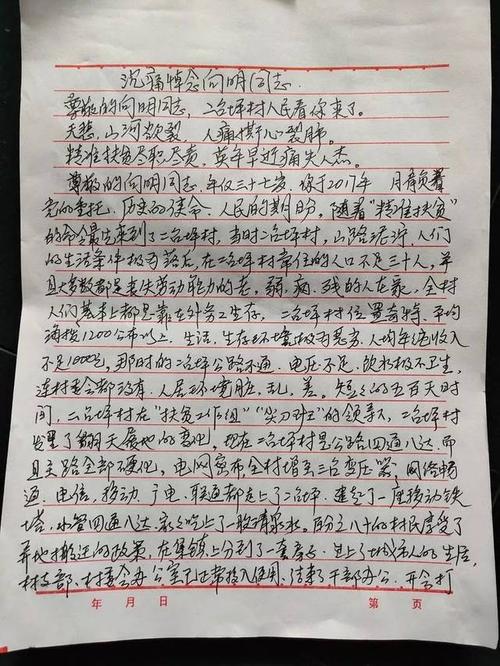 沉痛悼念向明同志.
尊敬的向明同志，二台坪村人民看你来了。
天愁，山河欲裂，人痛撕心裂肺。
精准扶贫尽职尽责，英年早逝痛失人杰。
尊敬的向明同志，年仅三十七岁，你于2017年 月肩负着
党的重托、历史的使命、人民的期盼，随着"精准扶贫"
的命令最先来到了二台坪村，当时二台坪村，山路泥泞，人们
的生活条件极为落后，在二台坪村常住的人口不足三十人，并
且大多数都是丧失劳动能力的老、弱、病、残的人在家，全村
人们基本上都是靠在外务工生存，二台坪村位置奇特，平均
海拔1200公尺以上，生活、生存环境极为恶劣，人均年纯收入
不足1000元，那时的二台坪公路不通，电压不足，饮水极不卫生，
连村委会都没有，人居环境脏、乱、差。短短的五百天时
间，二台坪村在"扶贫工作组""尖刀班"的领导下，二台坪村
发生了翻天覆地的变化，现在二台坪村是公路四通八达，而
且公路全部硬化，电网密布全村增了三台变压器，网络畅
通，电信、移动、广电、联通都上了二台坪，建起了一座移动铁
塔，水管四通八达，家家吃上了一股清泉水。百分之八十的村民享受了
异地搬迁的政策，在集镇上分到了一套房子，过上了城镇人的生活，
村支部、村委会办公室已正常投入使用，结束了干部办公、开会打
年 月 日
第 页